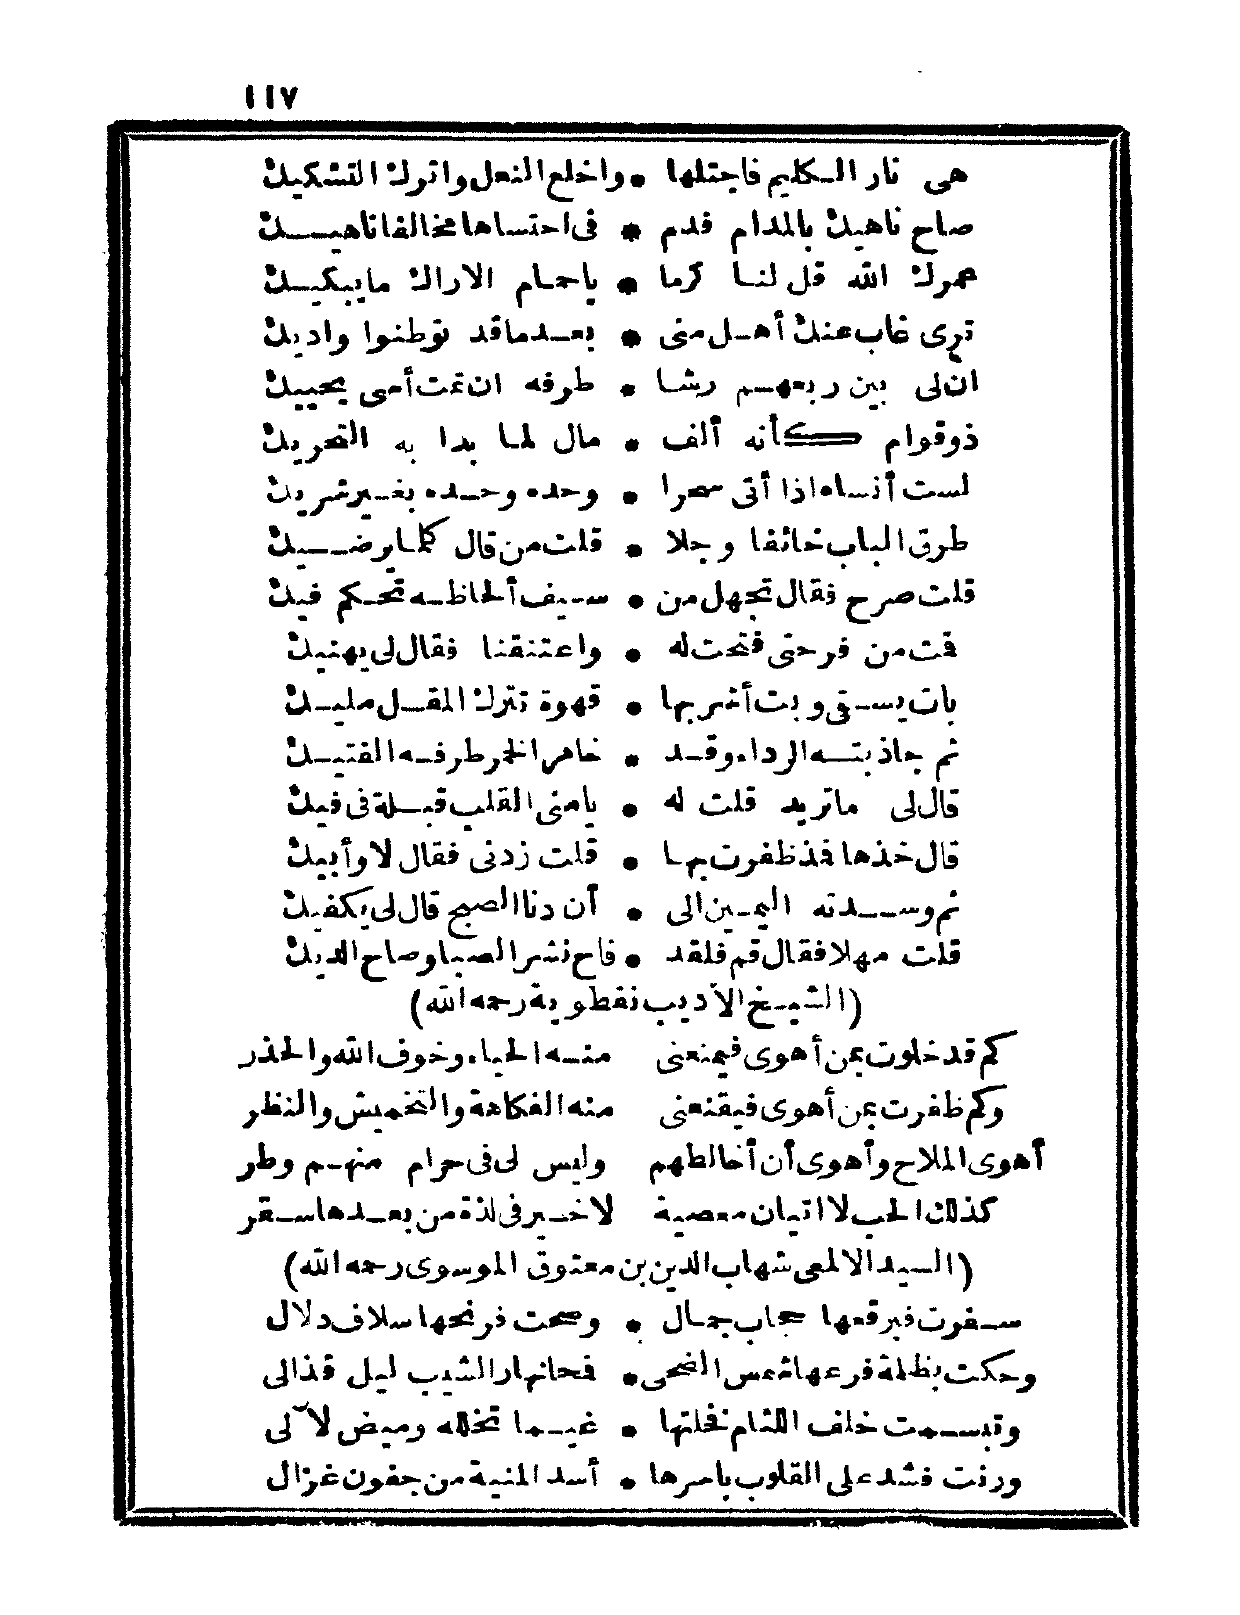 ١١٧
هى نار الكليم فاجتلها • واخلع النعل واترك التشكيك
صاح ناهيك بالمدام فدم • فى احتساها مخالفا ناهيك
عمرك الله قل لنا كرما • ياحمام الاراك مايبكيك
ترى غاب عنك أهل منى • بعد ماقد توطنوا واديك
ان لى بين ربعهم رشا • طرفه ان تمت أسى يحييك
ذوقوام كأنه ألف • مال لما بدا به التحريك
لست أنساه اذا أتى سحرا • وحده وحده بغير شريك
طرق الباب خائفا وجلا • قلت من قال كلما يرضيك
قلت صرح فقال تجهل من • سيف ألحاظه تحكم فيك
قمت من فرحتى فتحت له • واعتنقنا فقال لى يهنيك
بات يسقى وبت أشربها • قهوة تترك المقل مليك
ثم جاذبته الرداء وقد • خامر الخمر طرفه الفتيك
قال لى ماتريد قلت له • يامنى القلب قبلة فى فيك
قال خذها فذ ظفرت بها • قلت زدنى فقال لا وأبيك
ثم وسدته اليمين الى • أن دنا الصبح قال لى يكفيك
قلت مهلا فقال قم فلقد • فاح نشر الصبا وصاح الديك
(الشيخ الاديب نفطوية رحمه الله)
كم قد خلوت بمن أهوى فيمنعنى منه الحياء وخوف الله والحذر
وكم ظفرت بمن أهوى فيقنعنى منه الفكاهة والتخميش والنظر
أهوى الملاح وأهوى أن أخالطهم وليس لى فى حرام منهم وطر
كذلك الحب لا اتيان معصية لا خير فى لذة من بعدها سقر
(السيد الالمعى شهاب الدين بن معتوق الموسوى رحمه الله)
سفرت فبرقعها حجاب جمال • وصحت فرنحها سلاف دلال
وحكت بظلمة فرعها شمس الضحى • فحانهار الشيب ليل قذالى
وتبسمت خلف اللثام فخلتها • غيما تخلله وميض لآلى
ورنت فشد على القلوب باسرها • أسد المنية من جفون غزال